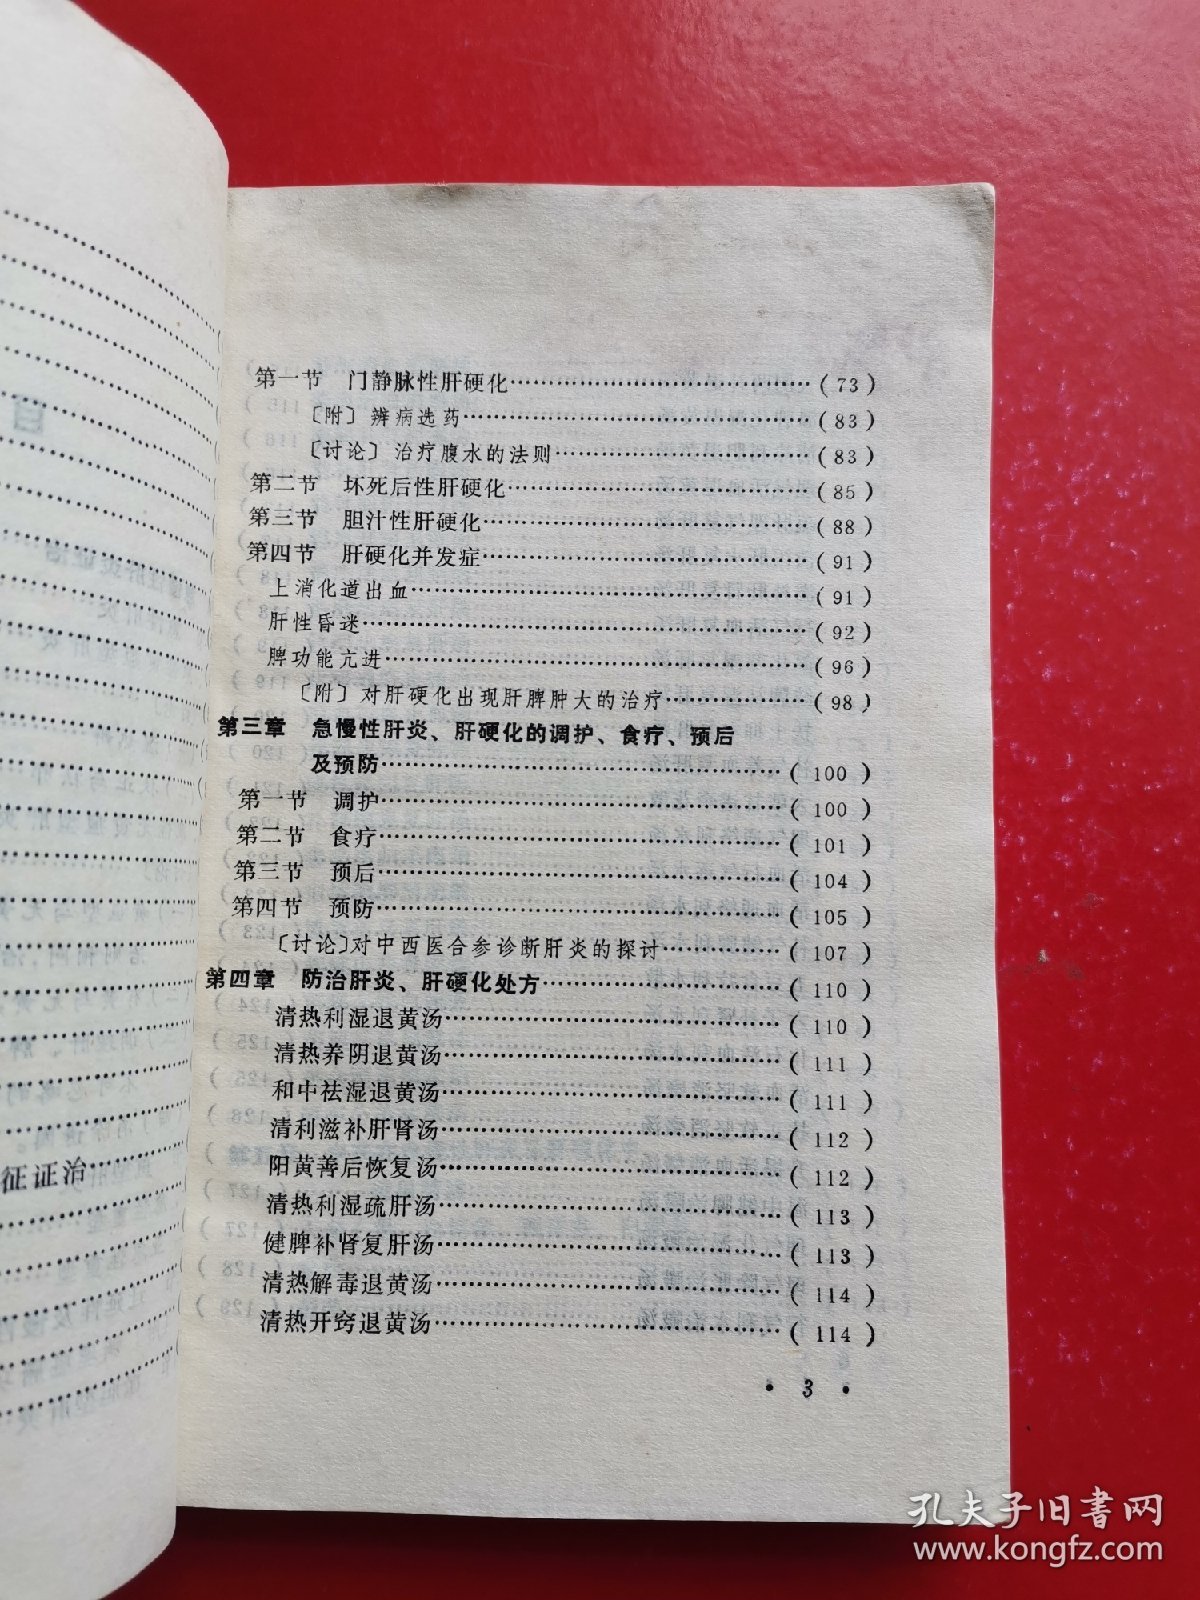 第一节 门静脉性肝硬化……………………………(73)
〔附〕辨病选药……………………………(83)
〔讨论〕治疗腹水的法则……………………(83)
第二节 坏死后性肝硬化……………………………(85)
第三节 胆汁性肝硬化……………………………(88)
第四节 肝硬化并发症……………………………(91)
上消化道出血……………………………(91)
肝性昏迷……………………………(92)
脾功能亢进……………………………(96)
〔附〕对肝硬化出现肝脾肿大的治疗……………(98)
第三章 急慢性肝炎、肝硬化的调护、食疗、预后
及预防……………………………(100)
第一节 调护……………………………(100)
第二节 食疗……………………………(101)
第三节 预后……………………………(104)
第四节 预防……………………………(105)
〔讨论〕对中西医合参诊断肝炎的探讨…………(107)
第四章 防治肝炎、肝硬化处方……………………(110)
清热利湿退黄汤……………………………(110)
清热养阴退黄汤……………………………(111)
和中祛湿退黄汤……………………………(111)
清利滋补肝肾汤……………………………(112)
阳黄善后恢复汤……………………………(112)
清热利湿疏肝汤……………………………(113)
健脾补肾复肝汤……………………………(113)
清热解毒退黄汤……………………………(114)
清热开窍退黄汤……………………………(114)
• 3 •
征证治
孔夫子旧书网
www.kongfz.com